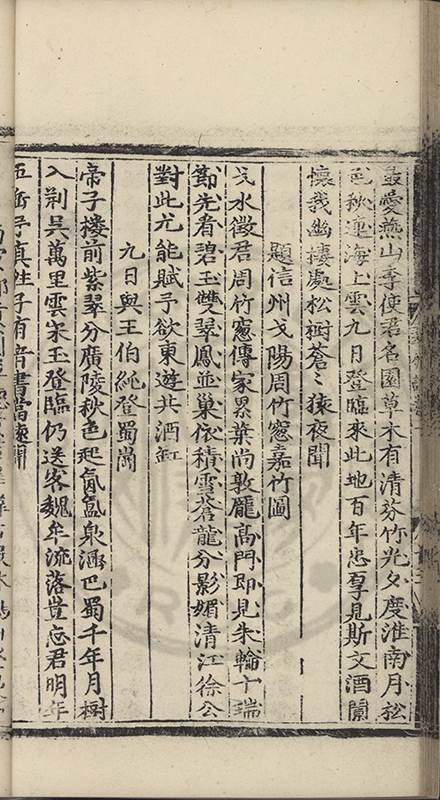 最愛燕山李使君名園草木有清芬竹光夕度淮南月松
色秋連海上雲九月登臨來此地百年忠孝見斯文酒闌
懷我幽棲處松樹蒼〻猿夜聞
題信州弋陽周竹窓嘉竹圖
弋水徵君周竹窓傳家累葉尚敦龐高門即見朱輪十瑞
節先看碧玉雙翠鳳並巢依積雪蒼龍分影媚清江徐公
對此尤能賦予欲東遊共酒缸
九日與王伯純登蜀岡
帝子樓前紫翠分廣陵秋色起氤氳泉通巴蜀千年月樹
入荆吳萬里雲宋玉登臨仍送客魏牟流落豈忘君明年
五
子真
子有音書當
聞